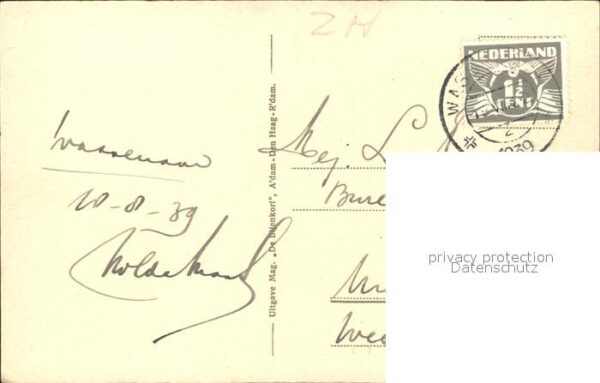 ZH
NEDERLAND
1½
CENT
WAS
2
1939
Wassenaar
10-8-39
Uitgave Mag. „De Bijenkorf", A'dam-Den Haag-R'dam.
Mej. L
Bure
privacy protection
Datenschutz